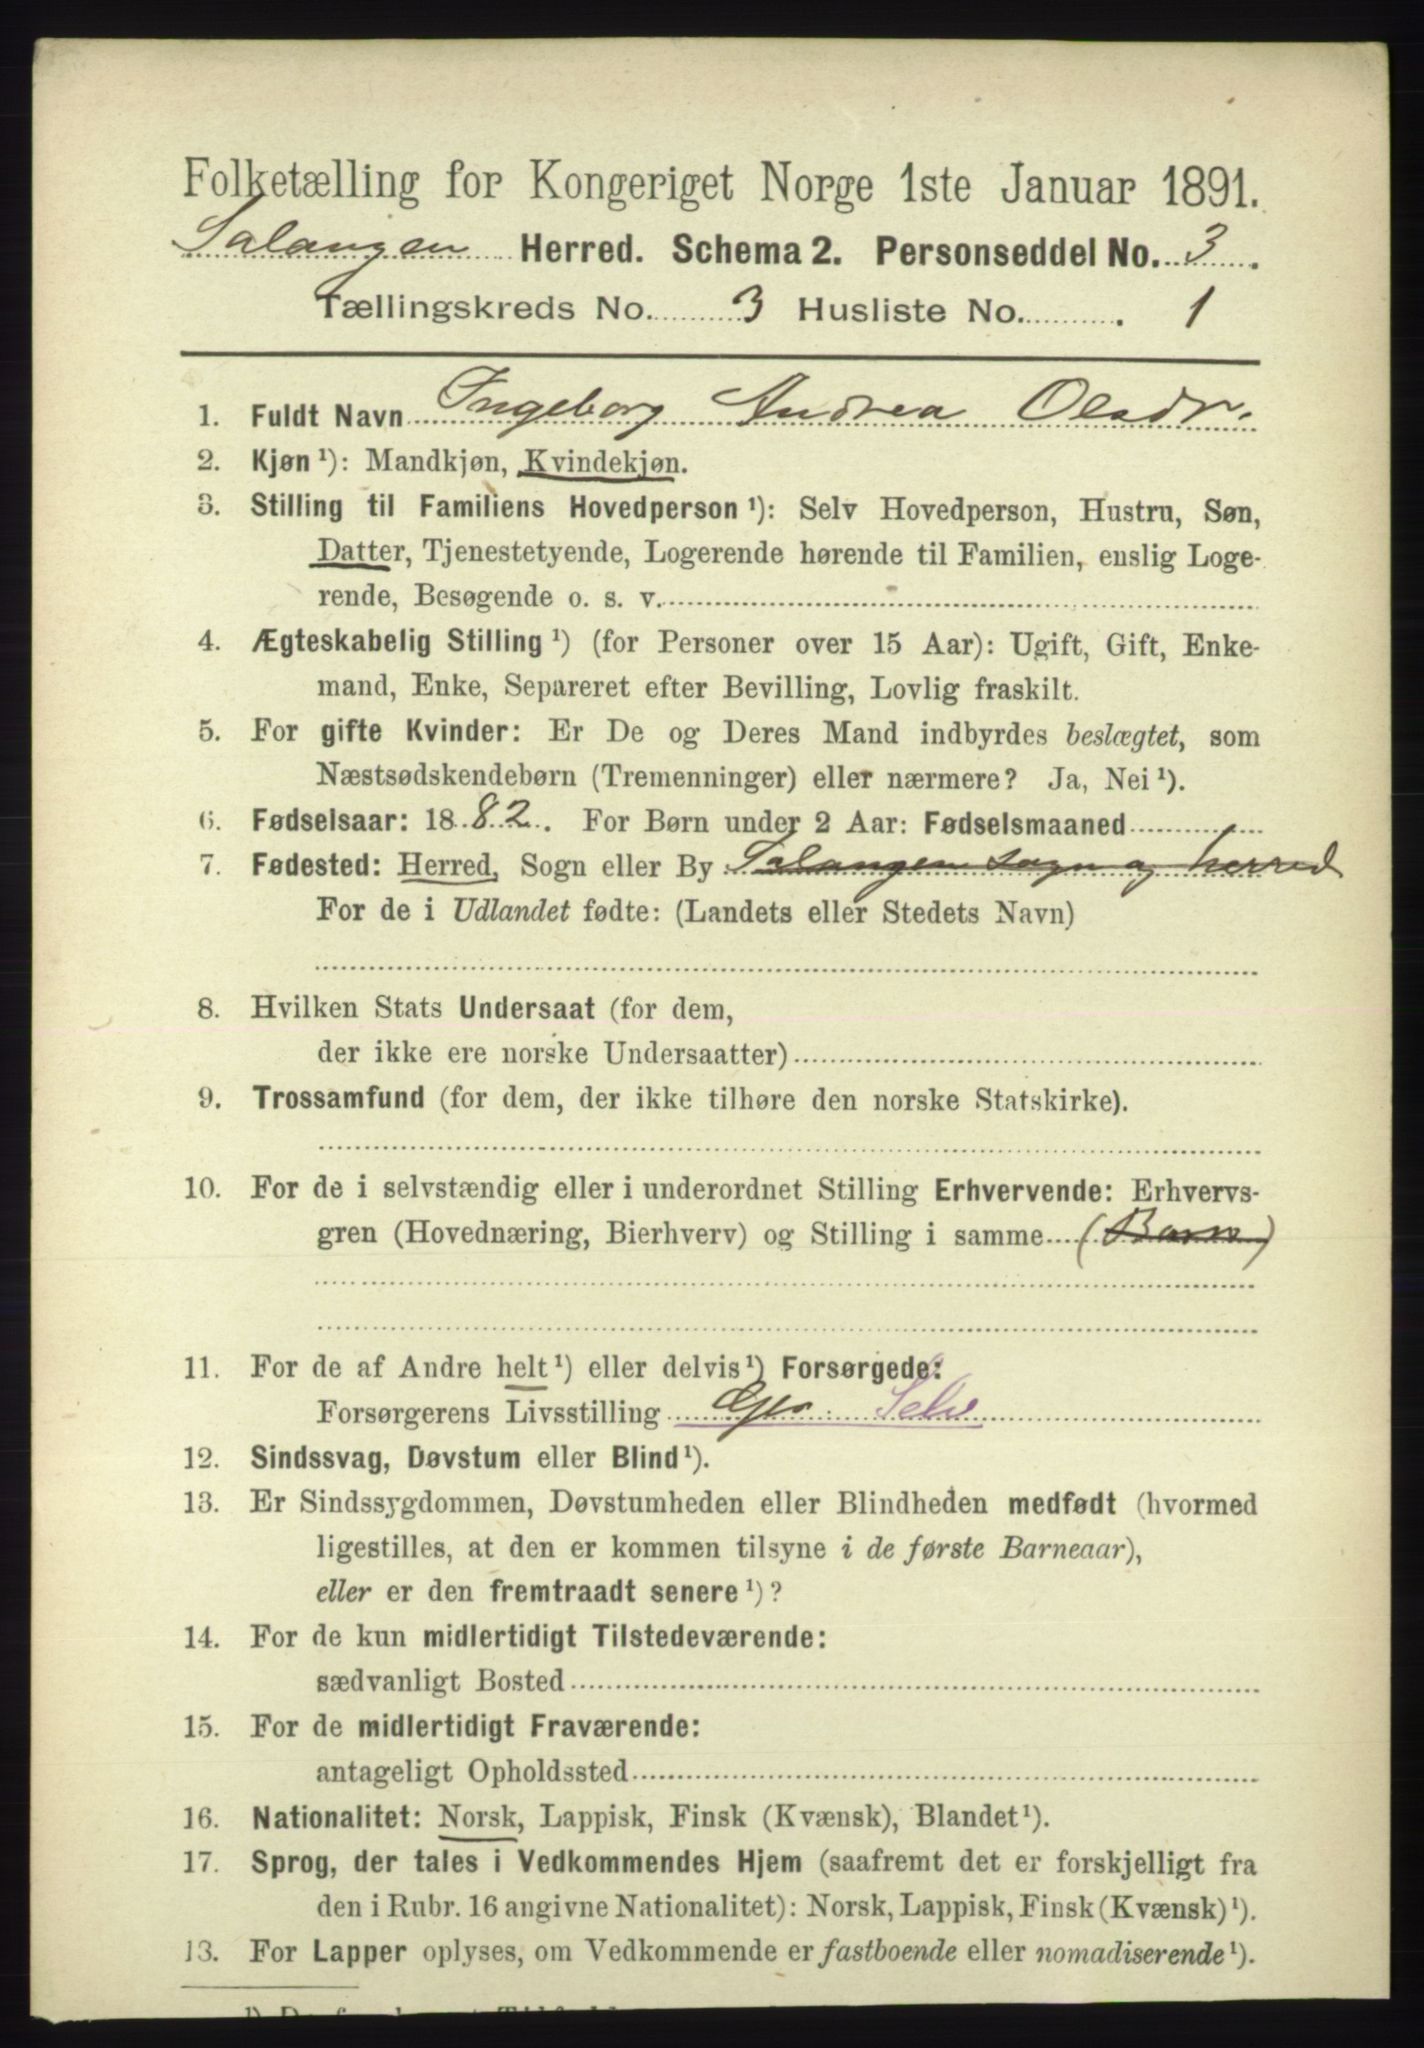 Folketælling for Kongeriget Norge 1ste Januar 1891.
Salangen Herred. Schema 2. Personseddel No. 3.
Tællingskreds No. 3 Husliste No. 1
1. Fuldt Navn Ingeborg Andrea Olsdr.
2. Kjøn ¹): Mandkjøn, Kvindekjøn.
3. Stilling til Familiens Hovedperson ¹): Selv Hovedperson, Hustru, Søn,
Datter, Tjenestetyende, Logerende hørende til Familien, enslig Loge-
rende, Besøgende o. s. v.
4. Ægteskabelig Stilling ¹) (for Personer over 15 Aar): Ugift, Gift, Enke-
mand, Enke, Separeret efter Bevilling, Lovlig fraskilt.
5. For gifte Kvinder: Er De og Deres Mand indbyrdes beslægtet, som
Næstsødskendebørn (Tremenninger) eller nærmere? Ja, Nei ¹).
6. Fødselsaar: 1882. For Børn under 2 Aar: Fødselsmaaned
7. Fødested: Herred, Sogn eller By Salangen sogn og herred
For de i Udlandet fødte: (Landets eller Stedets Navn)
8. Hvilken Stats Undersaat (for dem,
der ikke ere norske Undersaatter)
9. Trossamfund (for dem, der ikke tilhøre den norske Statskirke).
10. For de i selvstændig eller i underordnet Stilling Erhvervende: Erhvervs-
gren (Hovednæring, Bierhverv) og Stilling i samme (Barn)
11. For de af Andre helt ¹) eller delvis ¹) Forsørgede:
Forsørgerens Livsstilling Gjer. Selv
12. Sindssvag, Døvstum eller Blind ¹).
13. Er Sindssygdommen, Døvstumheden eller Blindheden medfødt (hvormed
ligestilles, at den er kommen tilsyne i de første Barneaar),
eller er den fremtraadt senere ¹)?
14. For de kun midlertidigt Tilstedeværende:
sædvanligt Bosted
15. For de midlertidigt Fraværende:
antageligt Opholdssted
16. Nationalitet: Norsk, Lappisk, Finsk (Kvænsk), Blandet ¹).
17. Sprog, der tales i Vedkommendes Hjem (saafremt det er forskjelligt fra
den i Rubr. 16 angivne Nationalitet): Norsk, Lappisk, Finsk (Kvænsk) ¹).
13. For Lapper oplyses, om Vedkommende er fastboende eller nomadiserende ¹).